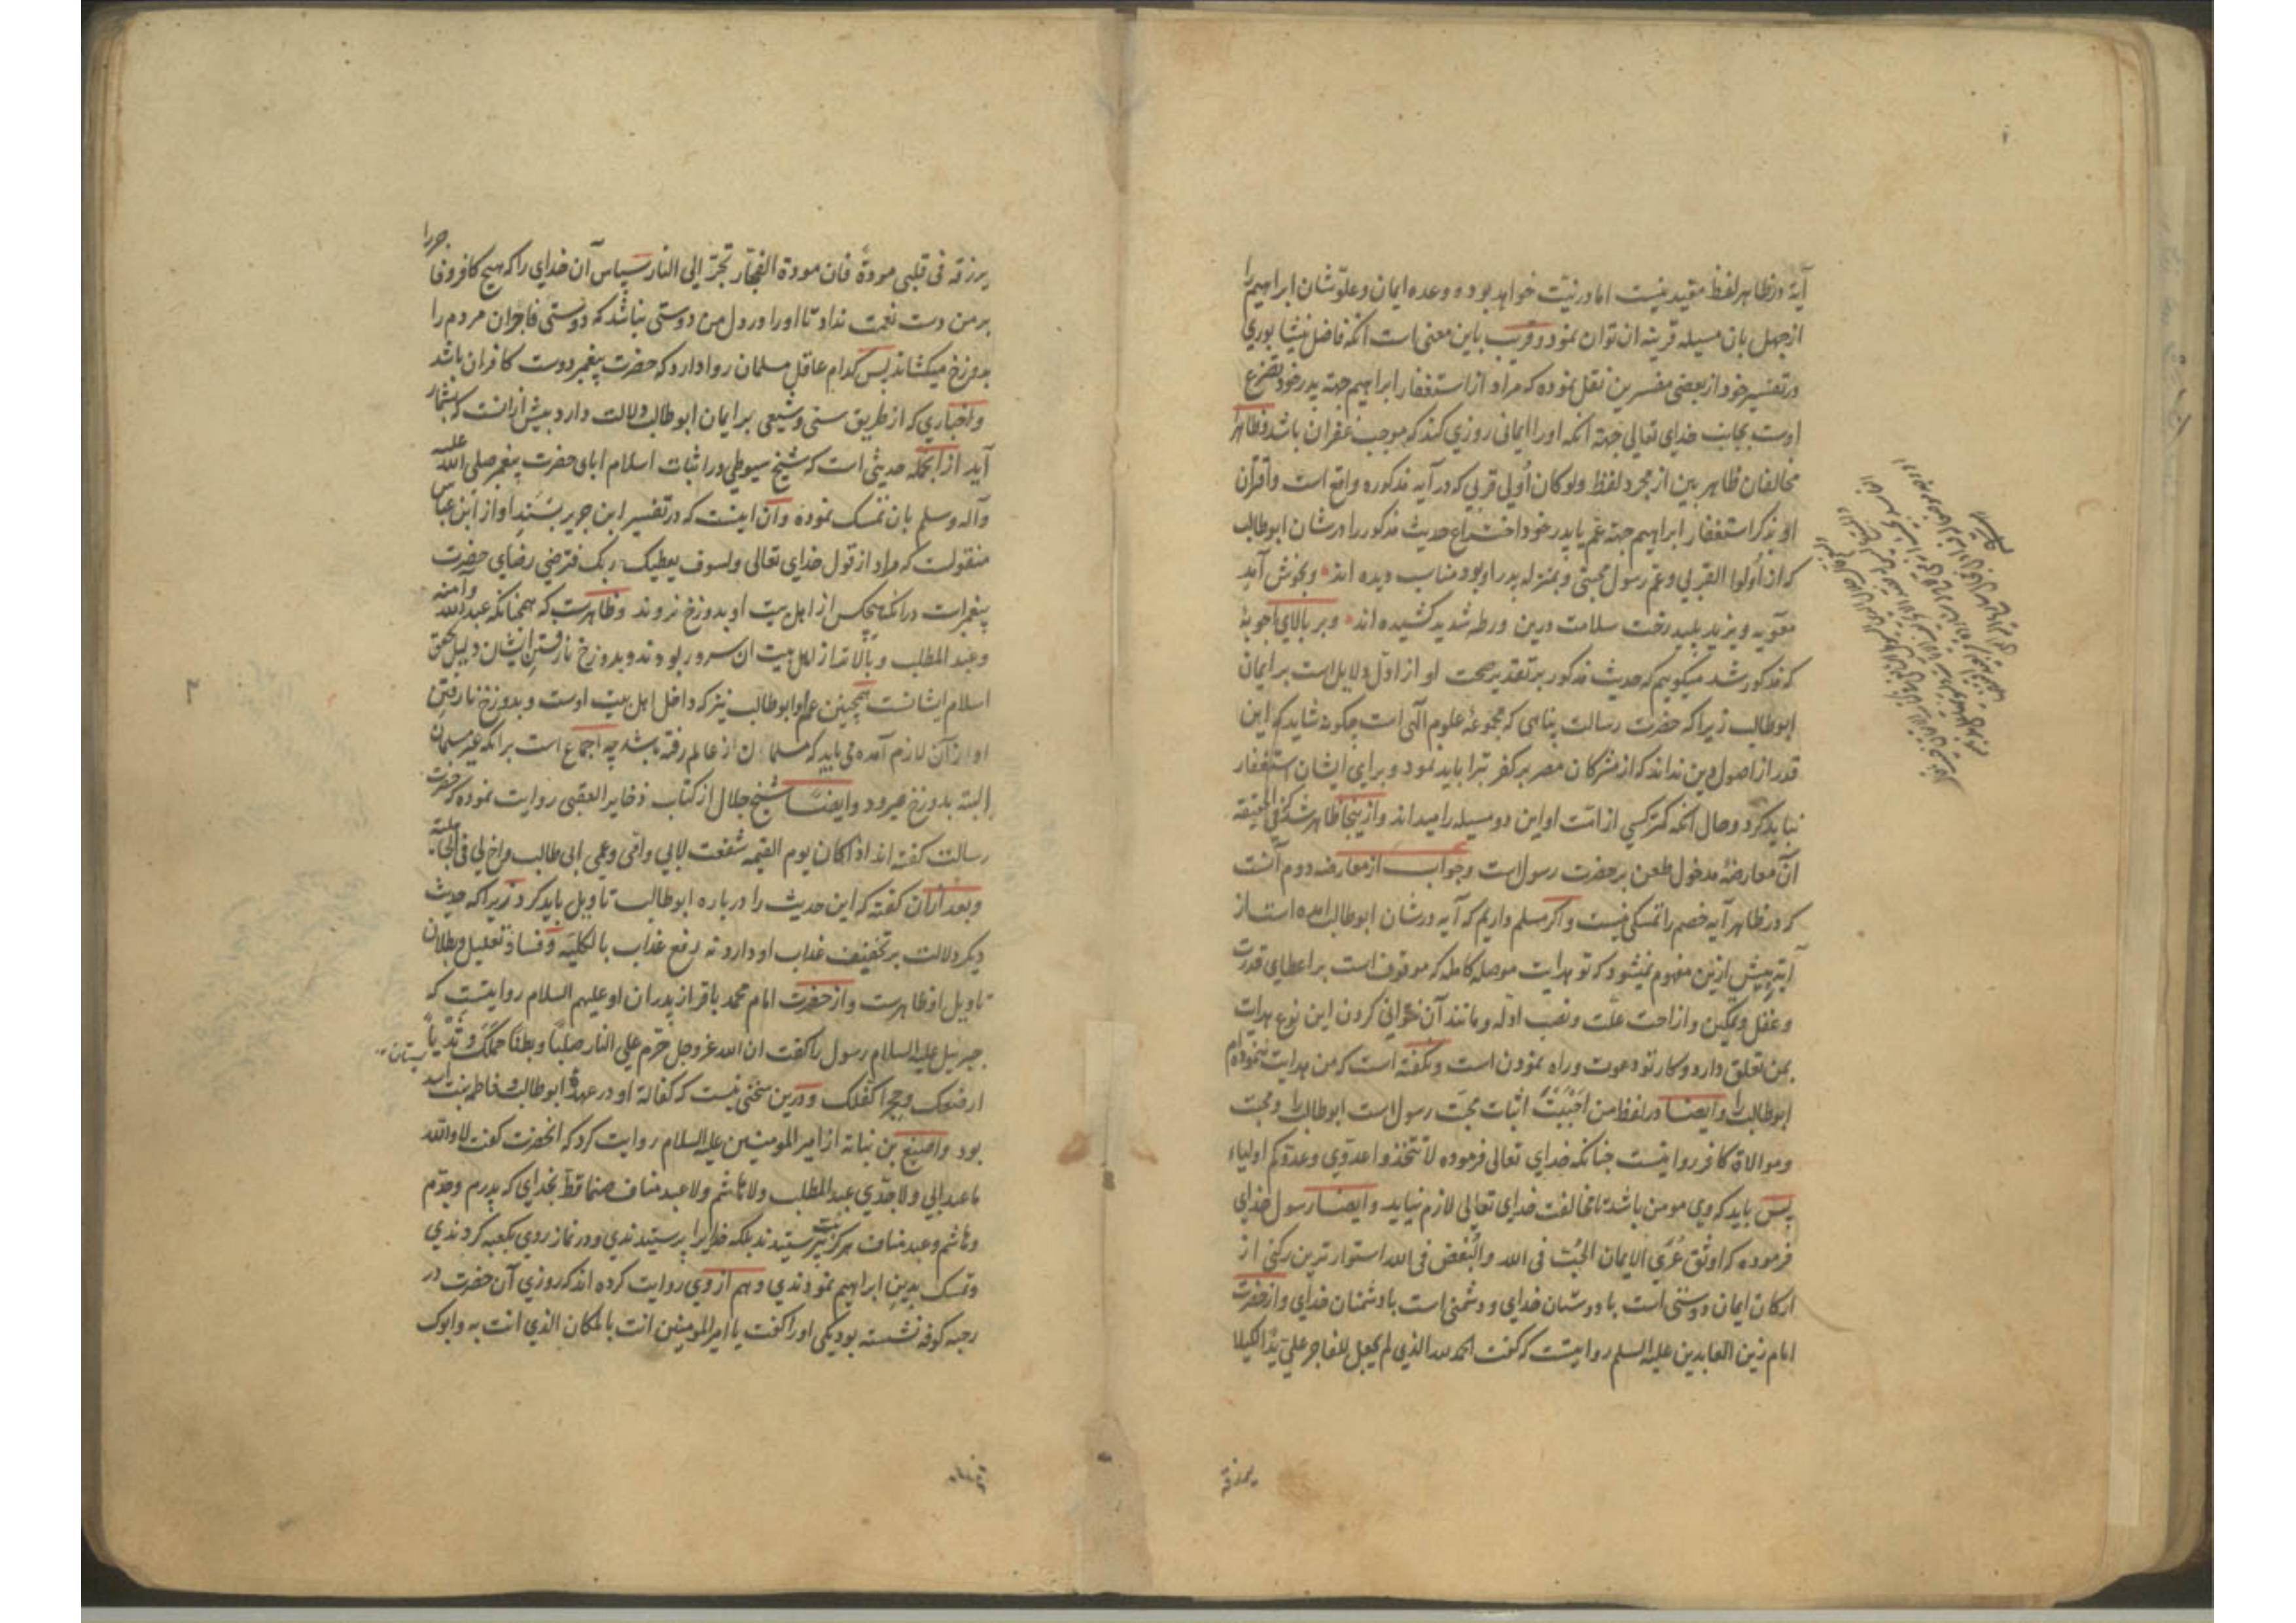 آیة در ظاهر لفظ مقید نیست اما در نیت خواهد بود و وعده ایمان و علو شان ابراهیم را
از جهل بان مسیله قرینه ان توان نمود و قریب باین معنی است آنکه فاضل نیشابوری
در تفسیر خود از بعضی مفسرین نقل نموده که مراد از استغفار ابراهیم جهة پدر خود تضرع
اوست بجانب خدای تعالی جهة آنکه او را ایمانی روزی کند که موجب غفران باشد و ظاهرا
مخالفان ظاهر بین از مجرد لفظ ولو کان اُولی قربی که در آیه مذکوره واقع است و اقتران
او بذکر استغفار ابراهیم جهة عم یا پدر خود اختراع حدیث مذکور را در شان ابوطالب
که از اُولوا القربی و عم رسول مجتبی و بمنزله پدر او بود مناسب دیده اند و بخوش آمد
معویه و یزید پلید رخت سلامت درین ورطه شدید کشیده اند و بر بالای اجوبه
که مذکور شد میگوییم که حدیث مذکور بر تقدیر صحت او از اول دلایل است بر ایمان
ابوطالب زیرا که حضرت رسالت پناهی که مجموعه علوم الهی است چگونه شاید که این
قدر از اصول دین نداند که از مشرکان مصر بر کفر تبرا باید نمود و برای ایشان استغفار
نباید کرد و حال آنکه کمتر کسی از امت او این دو مسیله را میداند و از ینجا ظاهر شد که فی الحقیقه
آن معارضه مدخول طعن بر حضرت رسول است و جواب از معارضه دوم آنست
که در ظاهر آیه خصم را تمسکی نیست و اگر مسلم داریم که آیه در شان ابوطالب آمده است از
آیة بیش ازین مفهوم نمیشود که تو هدایت موصله کامله که موقوف است بر اعطای قدرت
و عقل و تمکین و ازاحت علت و نصب ادله و مانند آن نتوانی کردن این نوع هدایت
بمن تعلق دارد و کار تو دعوت و راه نمودن است و نگفته است که من هدایت ننموده ام
ابوطالب را و ایضا در لفظ من اَحْبَبْتَ اثبات محبت رسول است ابوطالب را و محبت
و موالاة کافر روا نیست چنانکه خدای تعالی فرموده لا تتخذوا عدوی و عدوکم اولیاء
پس باید که وی مومن باشد تا مخالفت خدای تعالی لازم نیاید و ایضا رسول خدای
فرموده که اوثق عُرَی الایمان الحُبّ فی الله والبُغض فی الله استوار ترین رکنی از
ارکان ایمان دوستی است با دوستان خدای و دشمنی است با دشمنان خدای و از حضرت
امام زین العابدین علیه السلم روایتست که گفت الحمد لله الذی لم یجعل للفاجر علی یدا لکیلا
یرزقه
یرزقه فی قلبی مودة فان مودة الفجار تجر الی النار سپاس آن خدای را که هیچ کافر و فا
جر را
بر من دست نعمت نداد تا او را در دل من دوستی نباشد که دوستی فاجران مردم را
بدوزخ میکشاند پس کدام عاقل مسلمان روا دارد که حضرت پیغمبر دوست کافران باشد
و اخباری که از طریق سنی و شیعی بر ایمان ابوطالب دلالت دارد بیش از انست که بشمار
آید از انجمله حدیثی است که شیخ سیوطی در اثبات اسلام ابای حضرت پیغمبر صلی الله علیه
و آله و سلم بان تمسک نموده و آن اینست که در تفسیر ابن جریر بسند او از ابن عباس
منقولست که مراد از قول خدای تعالی ولسوف یعطیک ربک فترضی رضای حضرت
پیغمبر است در انکه هیچکس از اهل بیت او بدوزخ نروند و ظاهرست که همچنانکه عبد الله و آمنه
و عبد المطلب و بالاتر از اهل بیت ان سرور بودند و بدوزخ نارفتن ایشان دلیل تحقق
اسلام ایشانست همچنین عم او ابوطالب نیز که داخل اهل بیت اوست و بدوزخ نارفتن
او از آن لازم آمده می باید که مسلمان از عالم رفته باشد چه اجماع است بر انکه غیر مسلمان
البته بدوزخ میرود و ایضا شیخ جلال از کتاب ذخایر العقبی روایت نموده که حضرت
رسالت گفته اند اذا کان یوم القیمه شفعت لابی و امی و عمی ابی طالب و اخ لی فی الجاهلیة
و بعد ازان گفته که این حدیث را درباره ابوطالب تاویل باید کرد زیرا که حدیث
دیگر دلالت بر تخفیف عذاب او دارد نه رفع عذاب بالکلیه و فساد تعلیل و بطلان
تاویل او ظاهرست و از حضرت امام محمد باقر از پدران او علیهم السلام روایتست که
جبرییل علیه السلام رسول را گفت ان الله عز و جل حرم علی النار صلبا و بطنا حملک و ثدیا
ارضعک و حجرا کفلک و درین سخنی نیست که کفالة او در عهدهٔ ابوطالب و فاطمه بنت اسد
بود و اصبغ بن نباته از امیر المومنین علیه السلام روایت کرد که انحضرت گفت لا والله
ما عبد ابی ولا جدی عبد المطلب ولا هاشم ولا عبد مناف صنما قط بخدای که پدرم و جدم
و هاشم و عبد مناف هرگز بت نپرستیدند بلکه خدا را پرستیدندی و در نماز روی بکعبه کردندی
و تمسک بدین ابراهیم نمودندی و هم از وی روایت کرده اند که روزی آن حضرت در
رحبه کوفه نشسته بود یکی او را گفت یا امیر المومنین انت بالمکان الذی انت به و ابوک